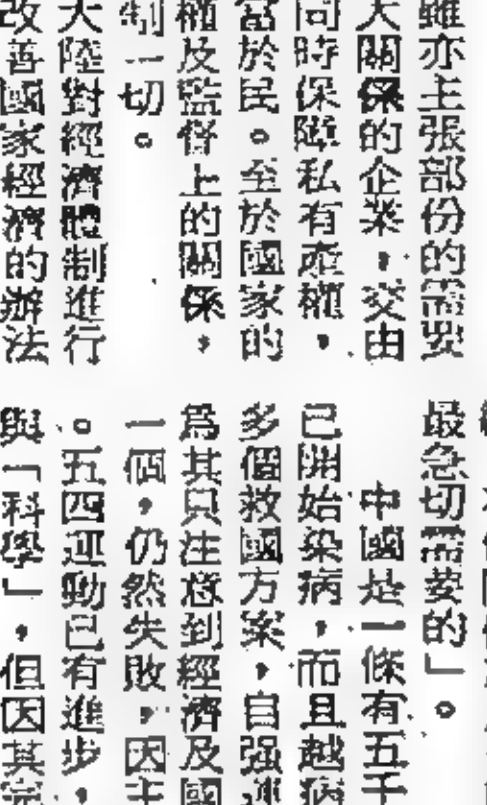 雖亦主張部份的需要
大關係的企業，交由
同時保障私有產權，
富於民。至於國家的
權及監督上的關係，
制一切。
大陸對經濟體制進行
改善國家經濟的辦法
最急切需要的」。
中國是一條有五千
已開始染病，而且越病
多個救國方案，自强運
爲其只注意到經濟及國
一個，仍然失敗，因主
。五四運動已有進步，
與「科學」，但因其完